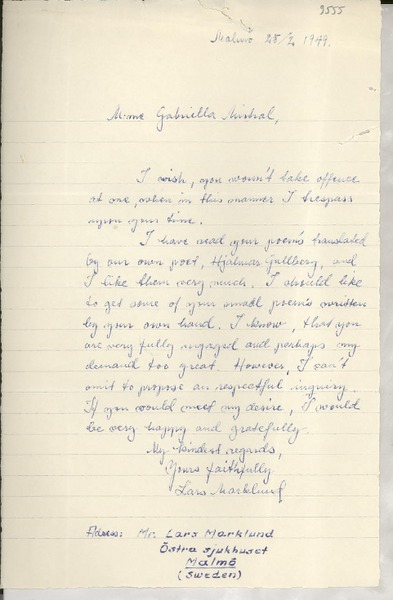 9555
Malmö 28/2 1949.
M:me Gabriella Mistral,
I wish, you wonn't take offence
at me, when in this manner I trespass
upon your time.
I have read your poem's translated
by our own poet, Hjalmar Gullberg, and
I like them very much. I should like
to get some of your small poem's written
by your own hand. I know, that you
are very fully engaged and perhaps my
demand too great. However, I can't
omit to propose an respectful inquiry.
If you would meet my desire, I would
be very happy and gratefully.
My kindest regards,
Yours faithfully
Lars Marklund
Adress: Mr. Lars Marklund
Östra sjukhuset
Malmö
(Sweden)